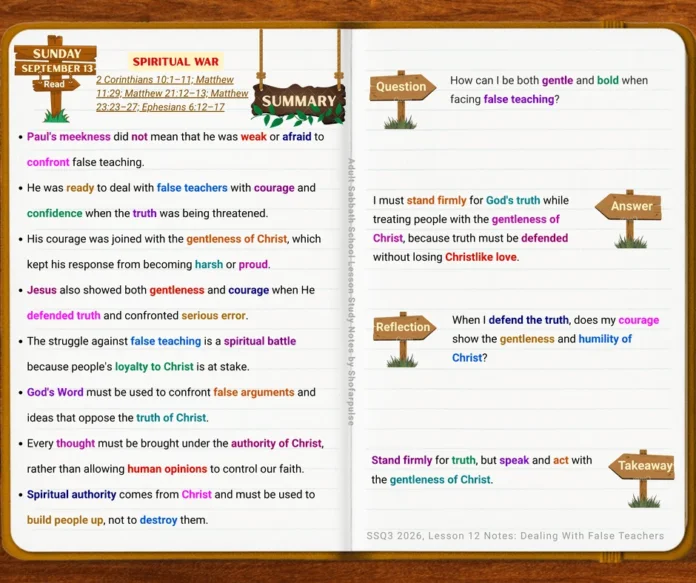 SUNDAY
SEPTEMBER 13
Read
SPIRITUAL WAR
2 Corinthians 10:1–11; Matthew
11:29; Matthew 21:12–13; Matthew
23:23–27; Ephesians 6:12–17
SUMMARY
• Paul's meekness did not mean that he was weak or afraid to
confront false teaching.
• He was ready to deal with false teachers with courage and
confidence when the truth was being threatened.
• His courage was joined with the gentleness of Christ, which
kept his response from becoming harsh or proud.
• Jesus also showed both gentleness and courage when He
defended truth and confronted serious error.
• The struggle against false teaching is a spiritual battle
because people's loyalty to Christ is at stake.
• God's Word must be used to confront false arguments and
ideas that oppose the truth of Christ.
• Every thought must be brought under the authority of Christ,
rather than allowing human opinions to control our faith.
• Spiritual authority comes from Christ and must be used to
build people up, not to destroy them.
Adult Sabbath School Lesson Study Notes by Shofarpulse
Question
How can I be both gentle and bold when
facing false teaching?
I must stand firmly for God's truth while
treating people with the gentleness of
Christ, because truth must be defended
without losing Christlike love.
Answer
Reflection
When I defend the truth, does my courage
show the gentleness and humility of
Christ?
Stand firmly for truth, but speak and act with
the gentleness of Christ.
Takeaway
SSQ3 2026, Lesson 12 Notes: Dealing With False Teachers